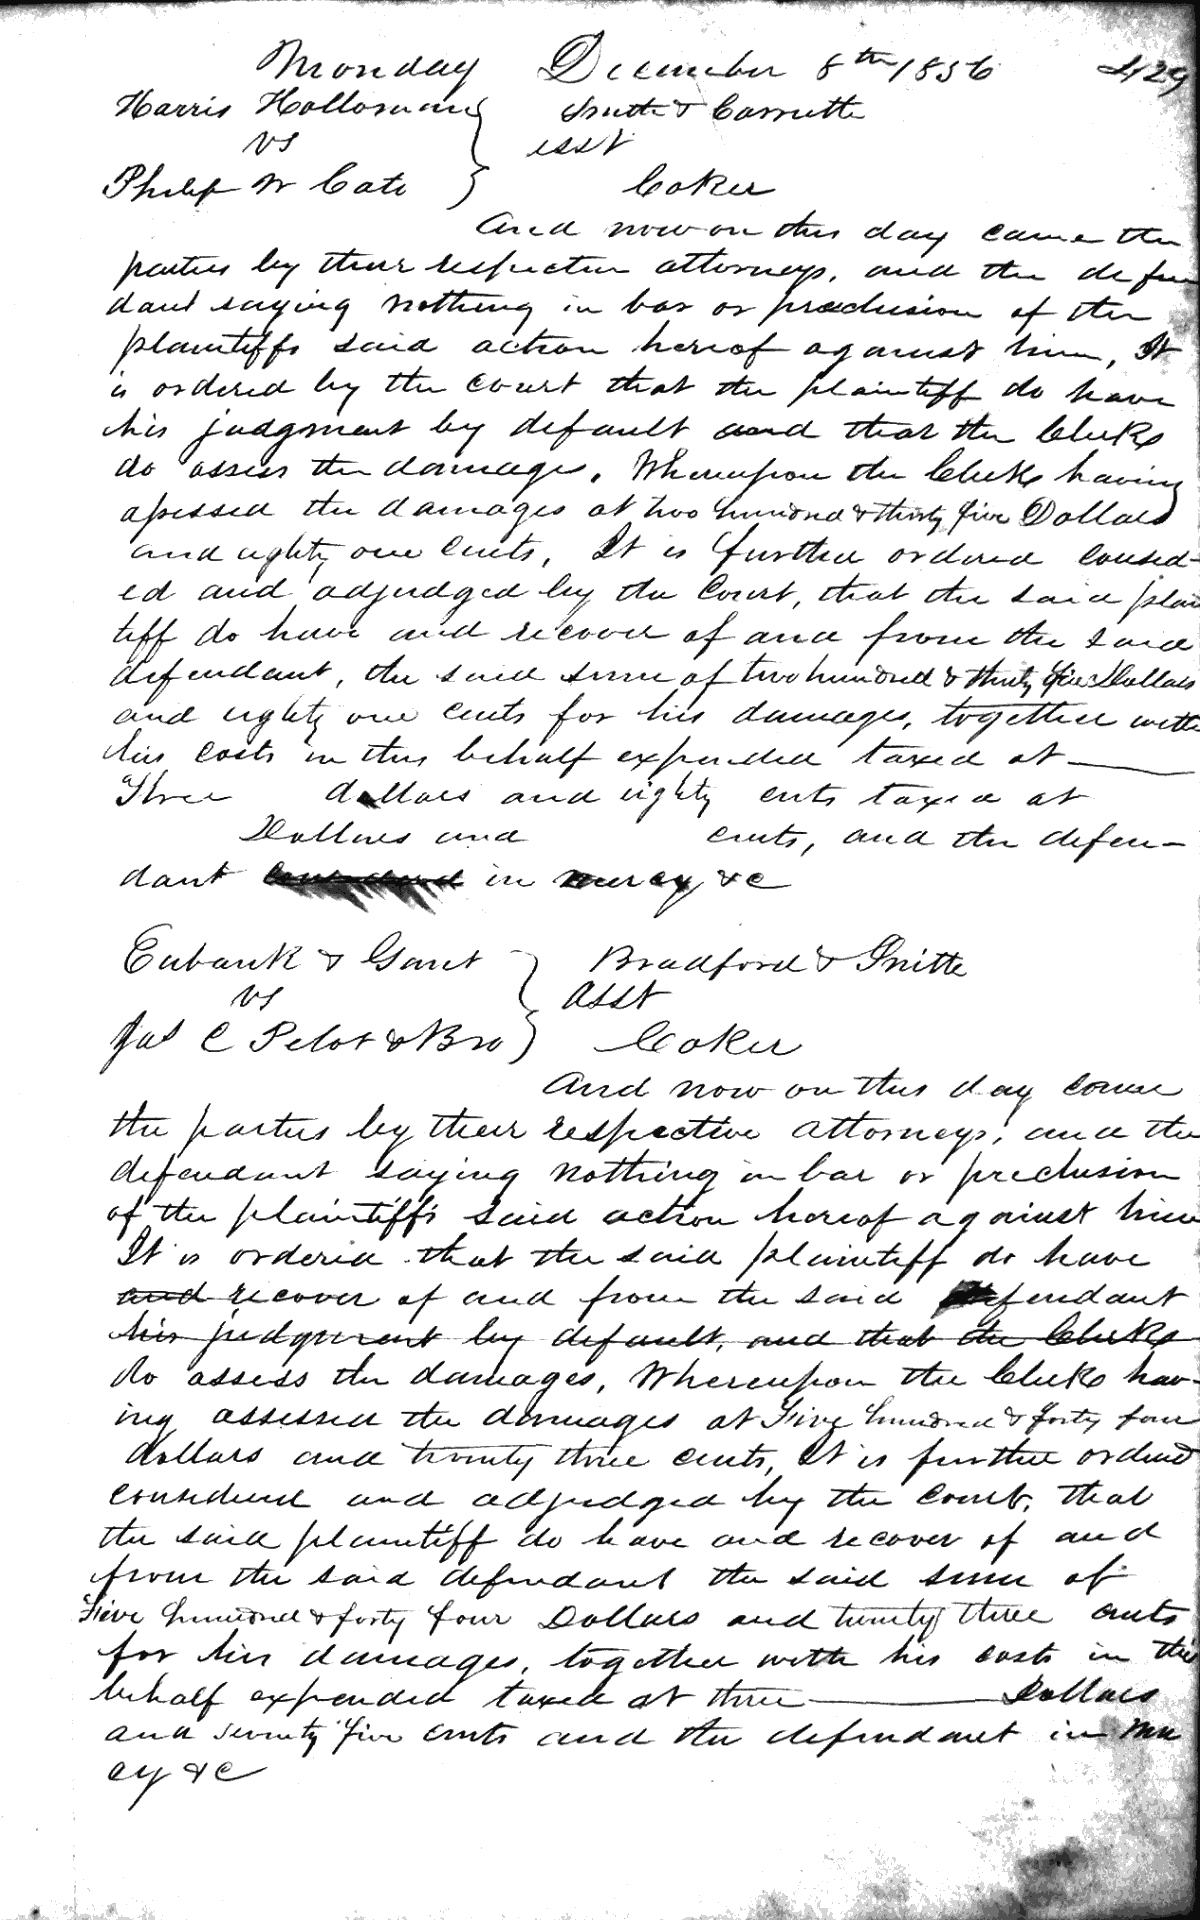 Monday December 8th 1856 429
Harris Holloman } Smith & Carruth
vs } asst
Philip W Cato } Coker
And now on this day came the
parties by their respective attorneys, and the defen
dant saying nothing in bar or preclusion of the
plaintiffs said action hereof against him, It
is ordered by the court that the plaintiff do have
his judgment by default and that the Clerks
do assess the damages. Whereupon the Clerks having
assessed the damages at two hundred & thirty five Dollars
and eighty one cents, It is further ordered consed-
ed and adjudged by the Court, that the said plain
tiff do have and recover of and from the said
defendant, the said sum of two hundred & thirty five Dollars
and eighty one cents for his damages, together with
his costs in this behalf expended taxed at
Three dollars and eighty cents taxed at
Dollars and cents, and the defen-
dant in mercy &c
Eubank & Gant } Bradford & Smith
vs } asst
Jas C Pelot & Bro } Coker
And now on this day came
the parties by their respective attorneys, and the
defendant saying nothing in bar or preclusion
of the plaintiffs said action hereof against him
It is ordered that the said plaintiff do have
and recover of and from the said defendant
his judgment by default, and that the Clerks
do assess the damages, Whereupon the Clerks hav-
ing assessed the damages at Five hundred & forty four
dollars and twenty three cents, It is further ordered
considered and adjudged by the court, that
the said plaintiff do have and recover of and
from the said defendant the said sum of
Five hundred & forty four Dollars and twenty three cents
for his damages, together with his costs in this
behalf expended taxed at three Dollars
and seventy five cents and the defendant in mer
cy &c